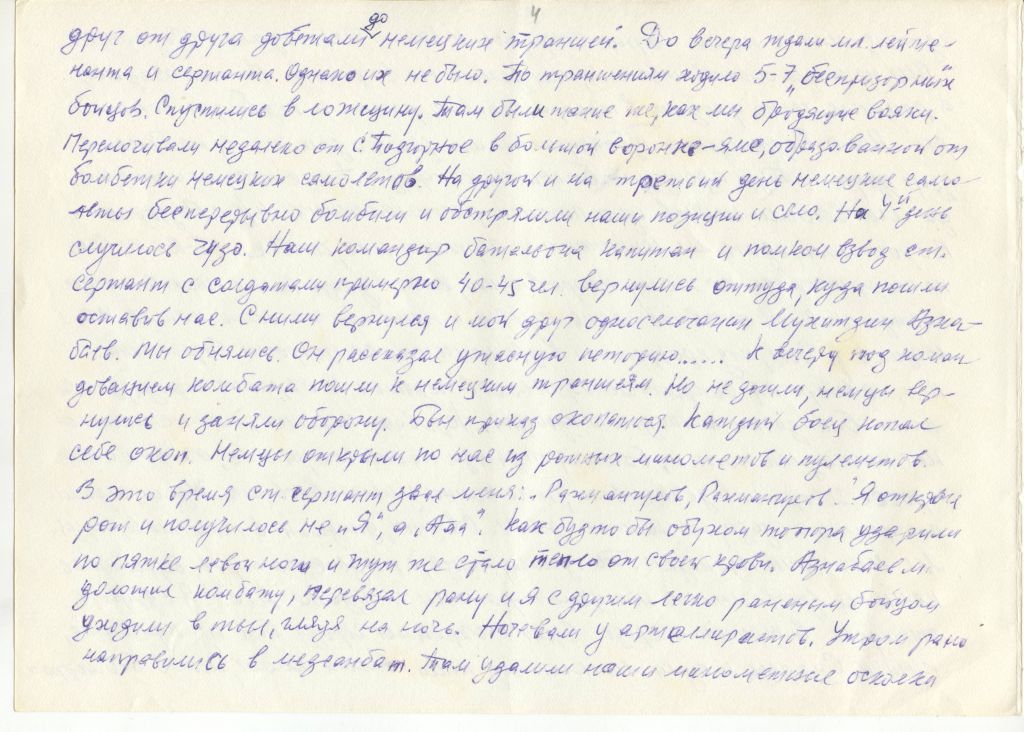 4
друг от друга добежали до немецких траншей. До вечера ждали мл. лейте-
нанта и сержанта. Однако их не было. По траншеям ходило 5-7 „беспризорных"
бойцов. Спустились в ложщину. Там были такие же, как мы бродящие вояки.
Переночивали недалеко от с. Подгорное в большой воронке-яме, образованной от
бомбежки немецких самолетов. На другой и на третьий день немецкие само-
леты беспередывно бомбили и обстряляли наши позиции и село. На 4-й день
случилось чудо. Наш командир батальона капитан и помком взвод ст.
сержант с солдатами примерно 40-45 чел. вернулись оттуда, куда пошли
оставив нас. С ними вернулся и мой друг односельчанин Мухитдин Азна-
баев. Мы обнялись. Он рассказал ужасную историю..... К вечеру под коман
дованием комбата пошли к немецким траншеям. Но не дошли, немцы вер-
нулись и заняли оборону. Был приказ окопаться. Каждый боец копал
себе окоп. Немцы открыли по нас из ротных минометов и пулеметов.
В это время ст. сержант звал меня: „Рахманкулов, Рахманкулов." Я открыл
рот и получилось не „Я", а „Ааа". Как будто бы обухом топора ударили
по пятке левой ноги и тут же стало тепло от своей крови. Азнабаев
доложил комбату, перевязал рану и я с другим легко раненым бойцом
уходили в тыл, глядя на ночь. Ночевали у артиллеристов. Утром рано
направились в медсанбат. Там удалили наши минометные осколки